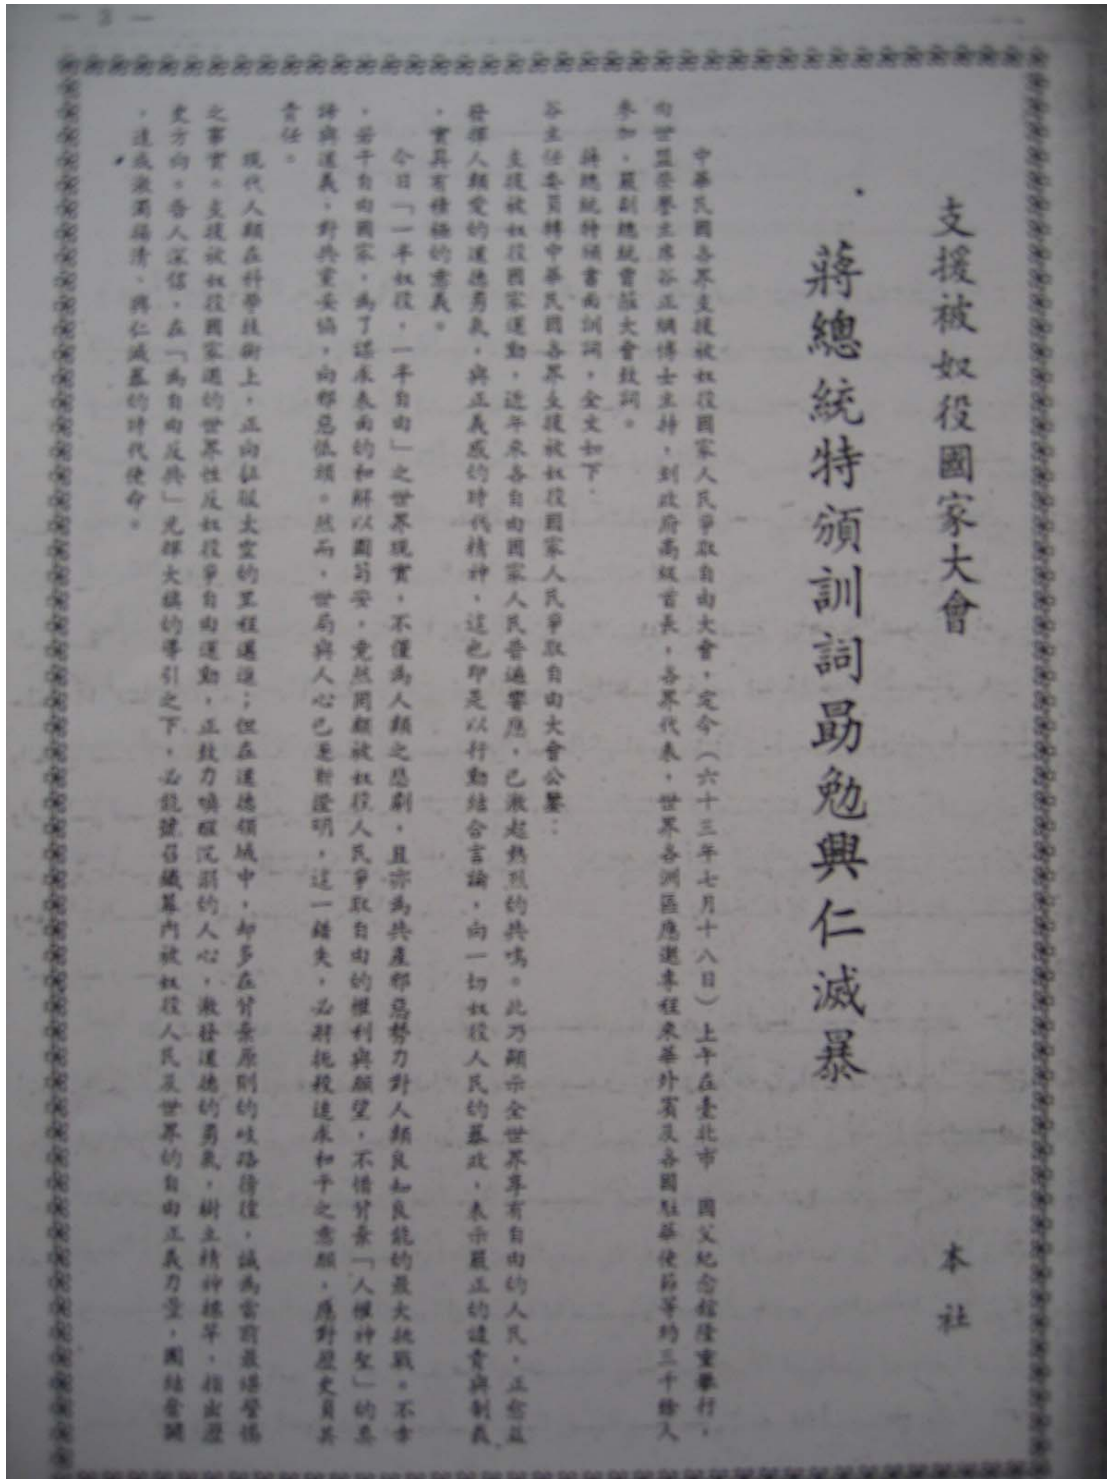 — 3 —
支援被奴役國家大會
本社
蔣總統特頒訓詞勗勉興仁滅暴
中華民國各界支援被奴役國家人民爭取自由大會，定今（六十三年七月十八日）上午在臺北市　國父紀念館隆重舉行，
由世盟榮譽主席谷正綱博士主持，到政府高級首長，各界代表，世界各洲區應邀專程來華外賓及各國駐華使節等約三千餘人
參加，嚴副總統曾蒞大會致詞。
蔣總統特頒書面訓詞，全文如下：
谷主任委員轉中華民國各界支援被奴役國家人民爭取自由大會公鑒：
支援被奴役國家運動，近年來各自由國家人民普遍響應，已激起熱烈的共鳴。此乃顯示全世界享有自由的人民，正愈益
發揮人類愛的道德勇氣，與正義感的時代精神，這也即是以行動結合言論，向一切奴役人民的暴政，表示嚴正的譴責與制裁
，實具有積極的意義。
今日「一半奴役，一半自由」之世界現實，不僅為人類之悲劇，且亦為共產邪惡勢力對人類良知良能的最大挑戰。不幸
，若干自由國家，為了謀求表面的和解以圖苟安，竟然罔顧被奴役人民爭取自由的權利與願望，不惜背棄「人權神聖」的真
諦與道義，對共黨妥協，向邪惡低頭。然而，世局與人心已更新證明，這一錯失，必將扼殺追求和平之意願，應對歷史負其
責任。
現代人類在科學技術上，正向征服太空的里程邁進；但在道德領域中，却多在背棄原則的歧路徬徨，誠為當前最堪警惕
之事實。支援被奴役國家週的世界性反奴役爭自由運動，正致力喚醒沉溺的人心，激發道德的勇氣，樹立精神標竿，指出歷
史方向。吾人深信，在「為自由反共」光輝大旗的導引之下，必能號召鐵幕內被奴役人民及世界的自由正義力量，團結奮鬪
，達成激濁揚清，興仁滅暴的時代使命。